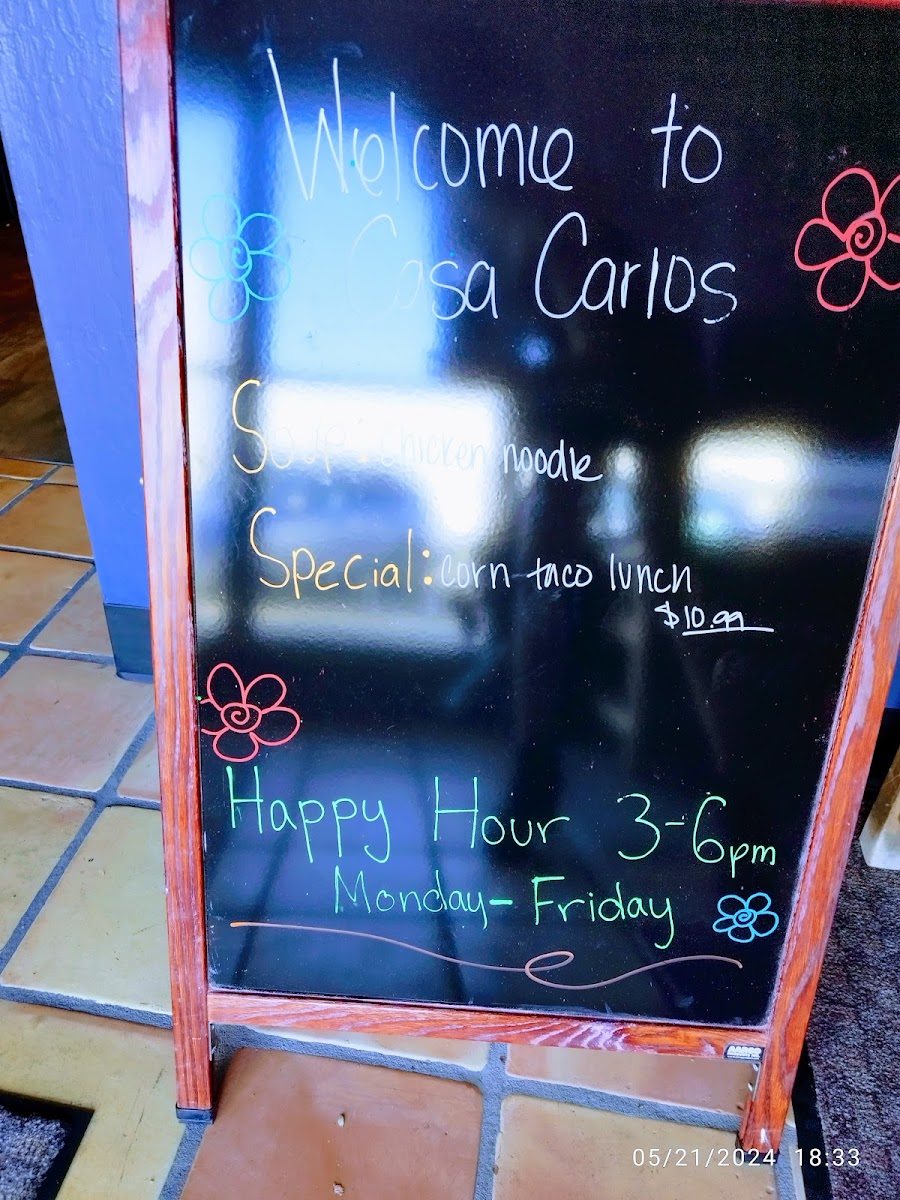 Welcome to
Casa Carlos
Soup: chicken noodle
Special: corn taco lunch
$10.99
Happy Hour 3-6pm
Monday-Friday
AARCO
05/21/2024 18:33